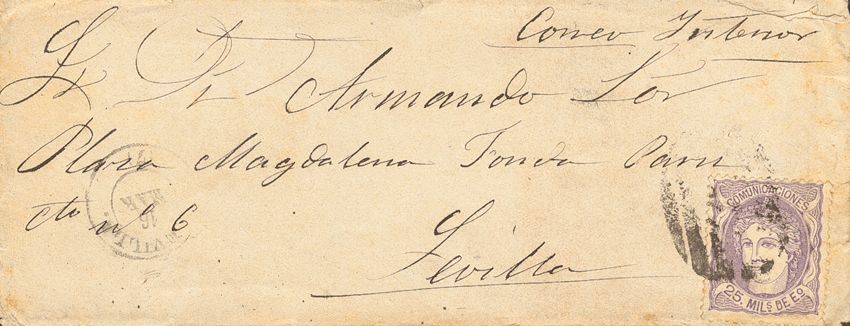 Correo Interior
Sr Dn Armando Lor
Plaza Magdalena Fonda Paris
cto nº 6
Sevilla
SEVILLA
16
MAR
COMUNICACIONES
25 MILS DE Eo